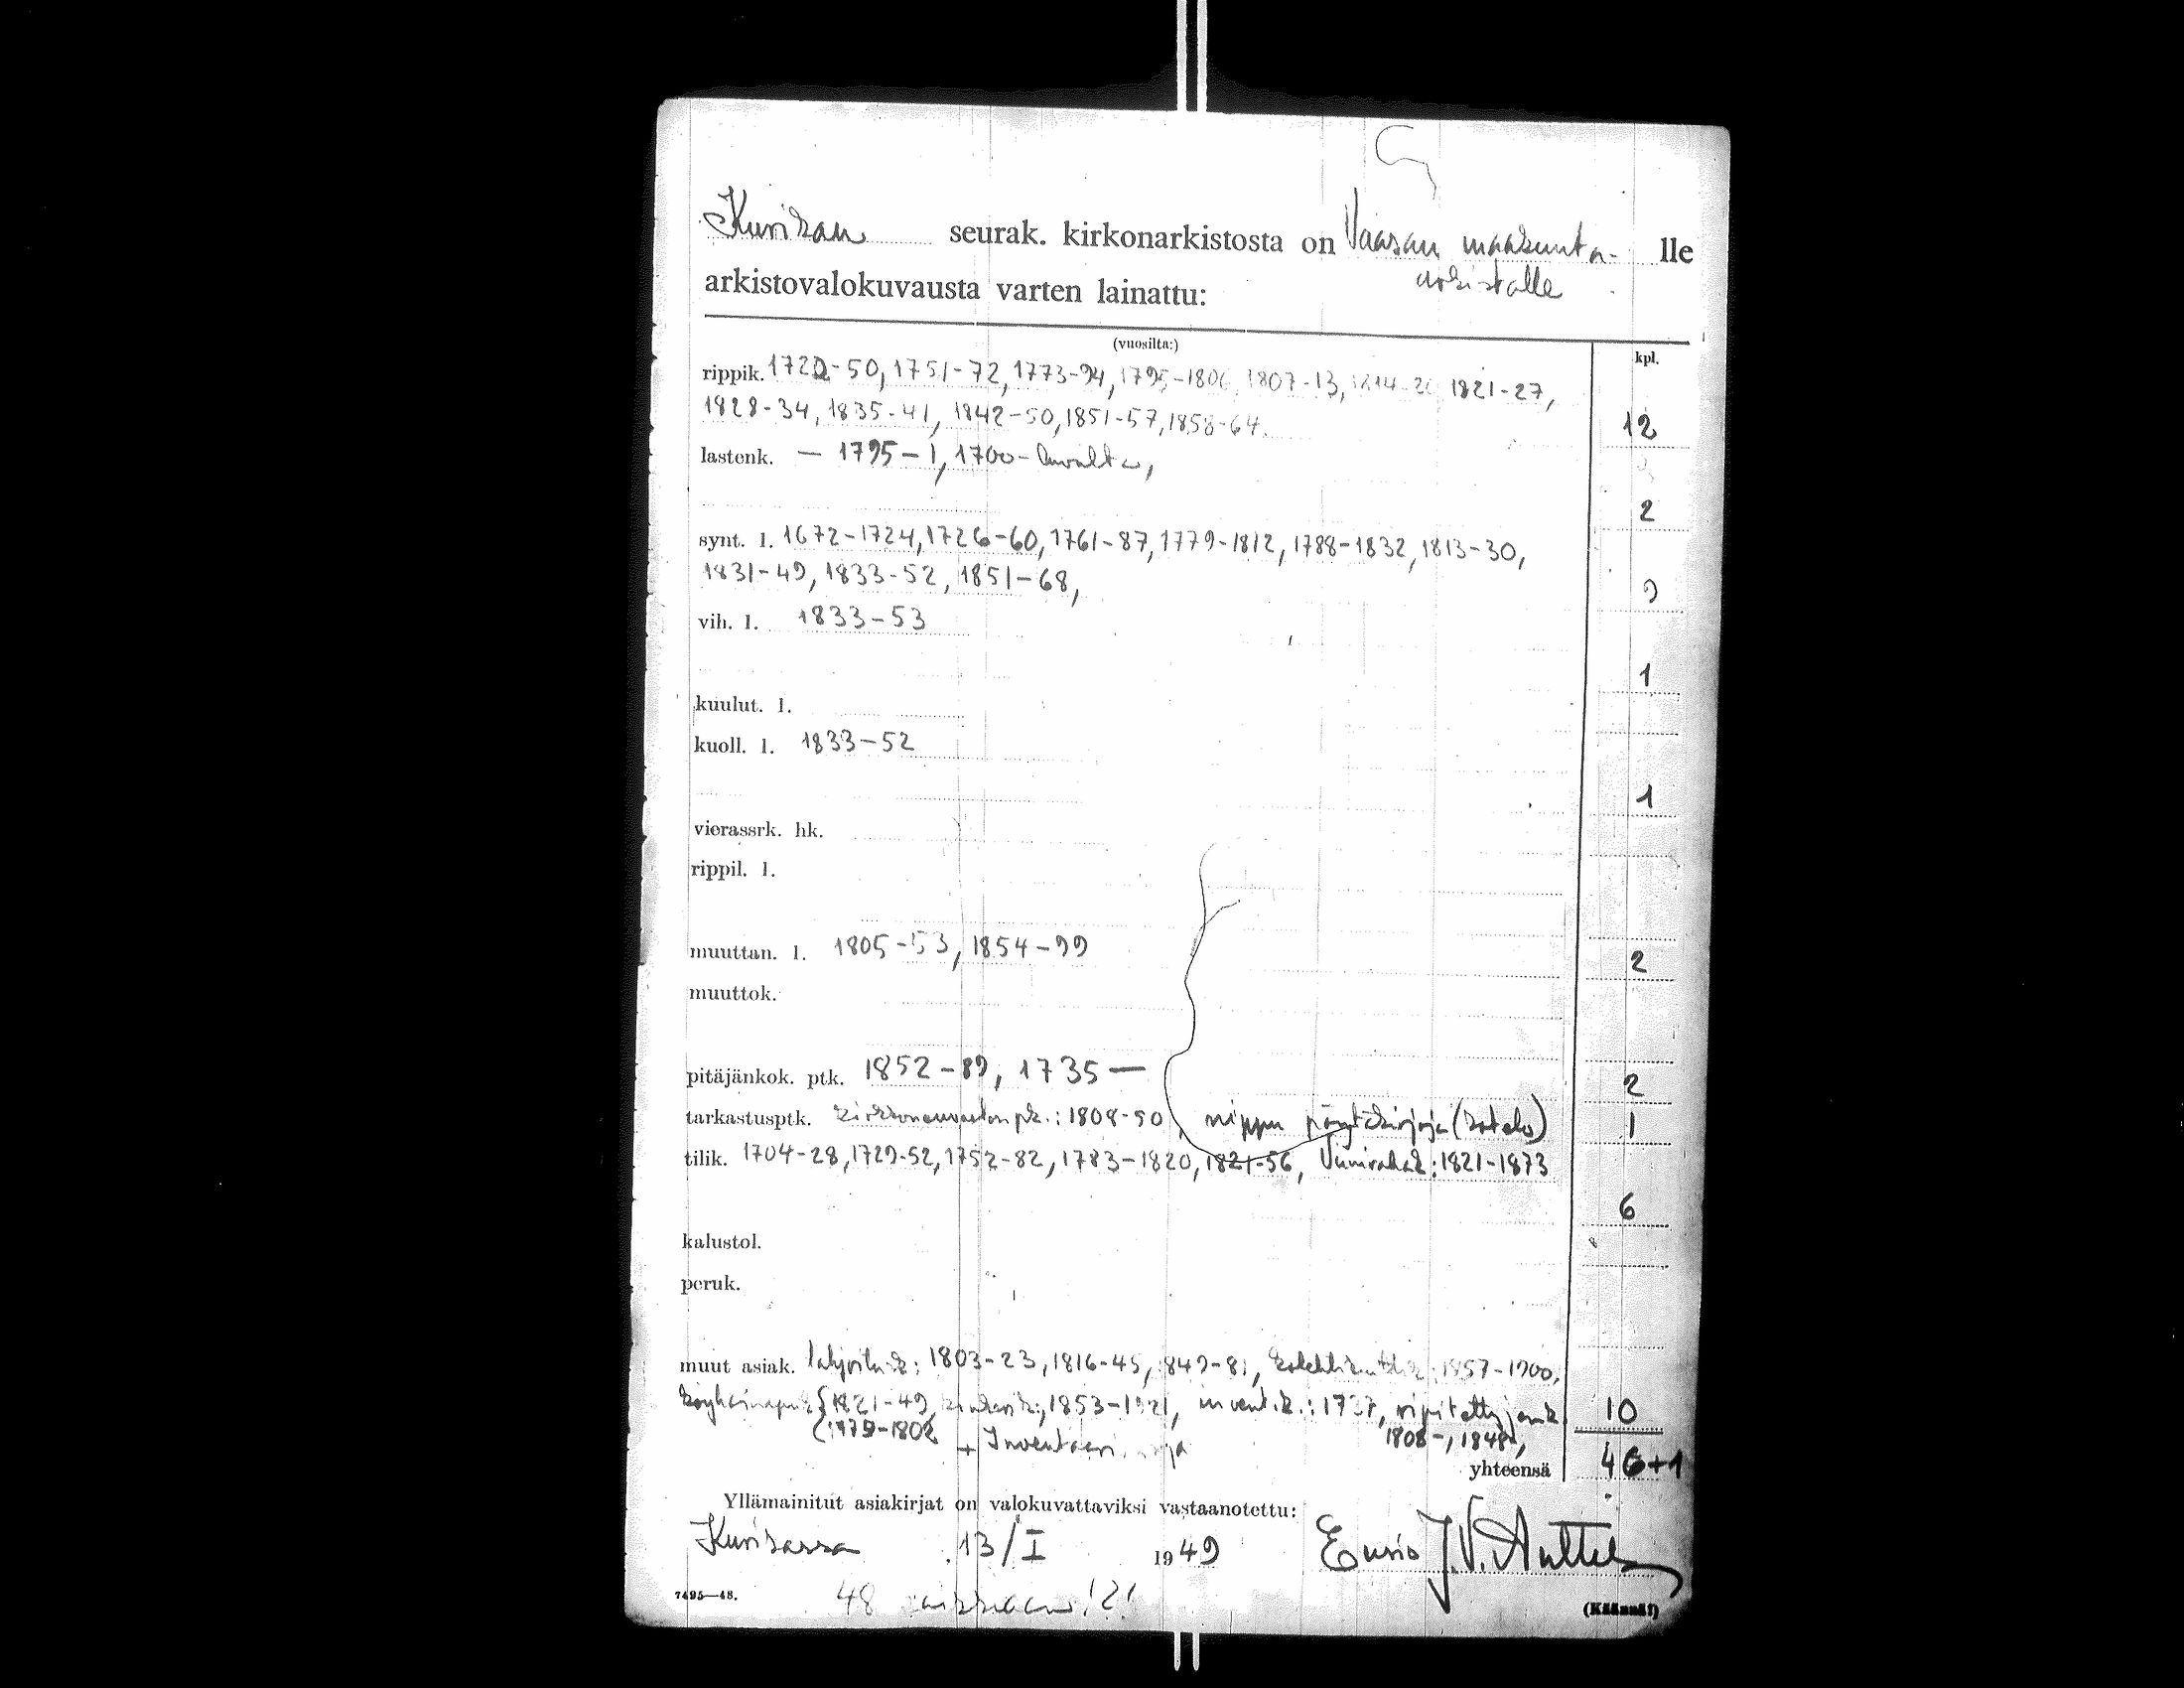 Kurikan seurak. kirkonarkistosta on Vaasan maakunta- lle
arkistovalokuvausta varten lainattu: arkistolle
(vuosilta:) kpl.
rippik. 1722-50, 1751-72, 1773-94, 1795-1806, 1807-13, 1814-20, 1821-27,
1828-34, 1835-41, 1842-50, 1851-57, 1858-64. 12
lastenk. — 1795-1, 1700-luvulta,
2
synt. l. 1672-1724, 1726-60, 1761-87, 1779-1812, 1788-1832, 1813-30,
1831-49, 1833-52, 1851-68, 9
vih. l. 1833-53
1
kuulut. l.
kuoll. l. 1833-52
1
vierassrk. hk.
rippil. l.
muuttan. l. 1805-53, 1854-99 2
muuttok.
pitäjänkok. ptk. 1852-89, 1735 — 2
tarkastusptk. kirkkoneuvoston pk.: 1808-50, nippu pöytäkirjoja (kotelo) 1
tilik. 1704-28, 1729-52, 1752-82, 1783-1820, 1821-56, Viinirahak.: 1821-1873
6
kalustol.
peruk.
muut asiak. lahjoitusk: 1803-23, 1816-45, 1849-81, 1857-1900,
köyhäinapuk. { 1821-49, 1853-1921, invent.k.: 1737, ripitettyjen k. 10
1808-, 1848,
+ Inventaari
yhteensä 46+1
Yllämainitut asiakirjat on valokuvattaviksi vastaanotettu:
Kurikassa 13/I 1949 Ensio J.V. Anttila
7495—48. 48 (Käännä!)